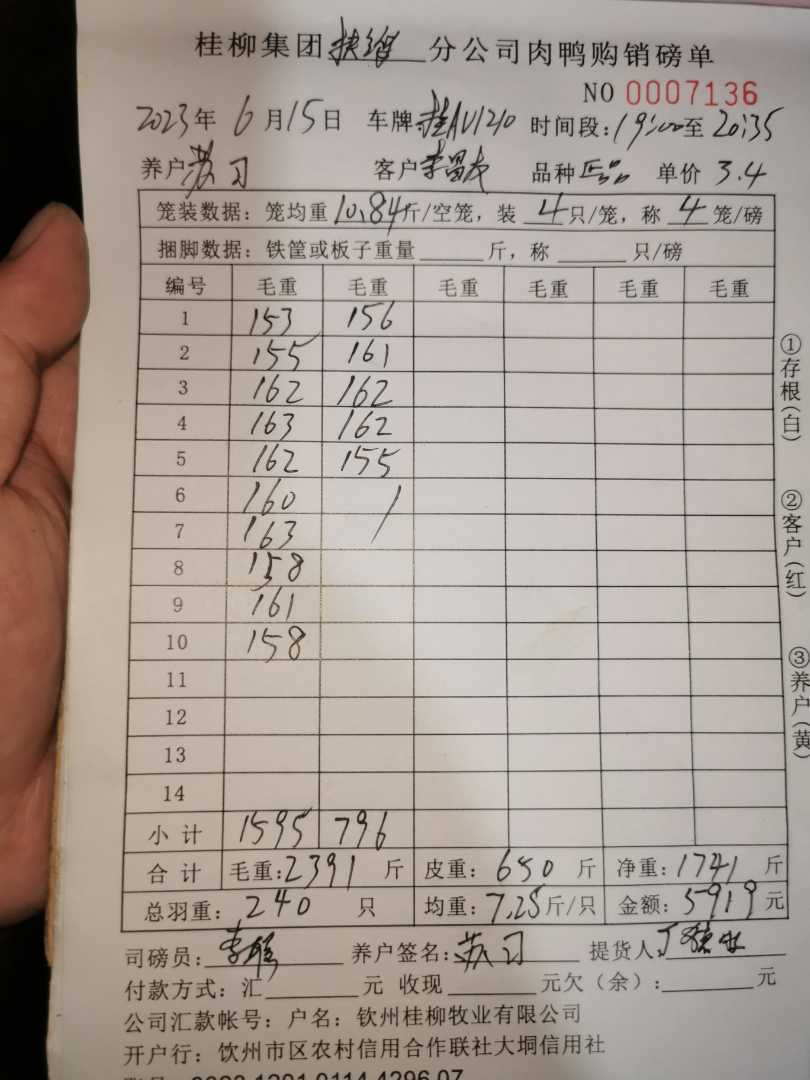 桂柳集团扶绥分公司肉鸭购销磅单
NO 0007136
2023年 6月15日 车牌桂AV1210 时间段:19:00至20:35
养户苏习 客户李昌友 品种正品 单价 3.4
笼装数据：笼均重 10.84斤/空笼，装 4只/笼，称 4 笼/磅
捆脚数据：铁筐或板子重量______斤，称______只/磅
编号 毛重 毛重 毛重 毛重 毛重 毛重
1 153 156
2 155 161
3 162 162
4 163 162
5 162 155
6 160 /
7 163
8 158
9 161
10 158
11
12
13
14
小计 1595 796
合计 毛重:2391 斤 皮重：650 斤 净重:1741 斤
总羽重：240 只 均重:7.25斤/只 金额：5919元
司磅员: 养户签名:苏习 提货人:
付款方式：汇________元 收现________元欠（余）:________元
公司汇款帐号：户名：钦州桂柳牧业有限公司
开户行：饮州市区农村信用合作联社大垌信用社
①存根(白)
②客户(红)
③养户(黄)